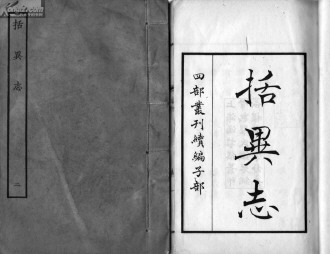 括異志
二
四部叢刊續編子部
括異志